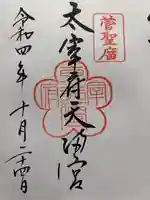 菅聖廟
太宰府天満宮
令和四年十月二十四日